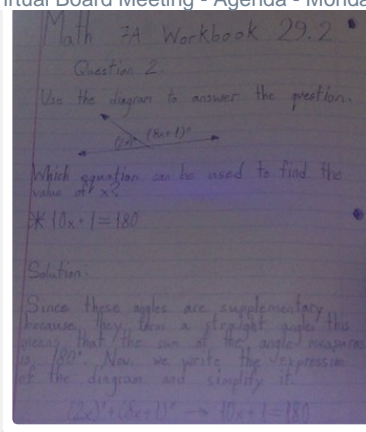 irtual Board Meeting - Agenda - Monda
Math 7A Workbook 29.2
Question 2
Use the diagram to answer the question.
(2x)° (8x+1)°
Which equation can be used to find the
value of x?
10x+1=180
Solution.
Since these angles are supplementary
because they form a straight angle, this
means that the sum of the angle measures
is 180°. Now we write the expression
of the diagram and simplify it.
(2x)°+(8x+1)° → 10x+1=180